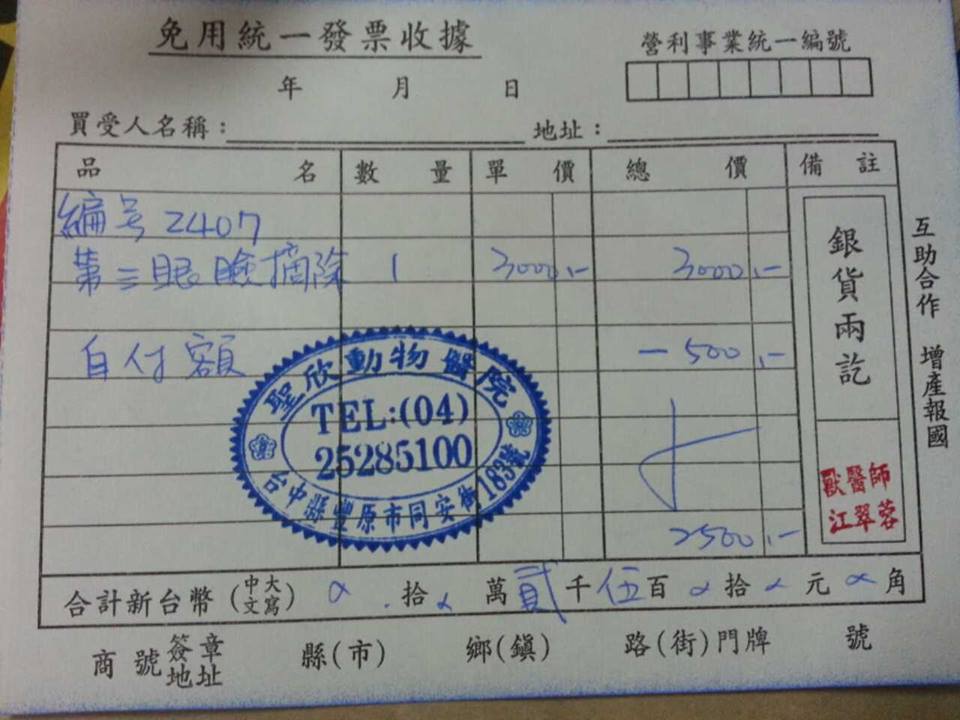 免用統一發票收據
營利事業統一編號
年 月 日
買受人名稱： 地址：
品名 數量 單價 總價 備註
編号 2407
第三眼瞼摘除 1 3000.- 3000.-
自付額 -500.-
2500.-
聖欣動物醫院
TEL:(04)
25285100
台中縣豐原市同安街183號
銀貨兩訖
獸醫師
江翠蓉
互助合作 增產報國
合計新台幣(中文大寫) 拾 萬 貳千 伍百 拾 元 角
商號簽章地址 縣(市) 鄉(鎮) 路(街)門牌 號